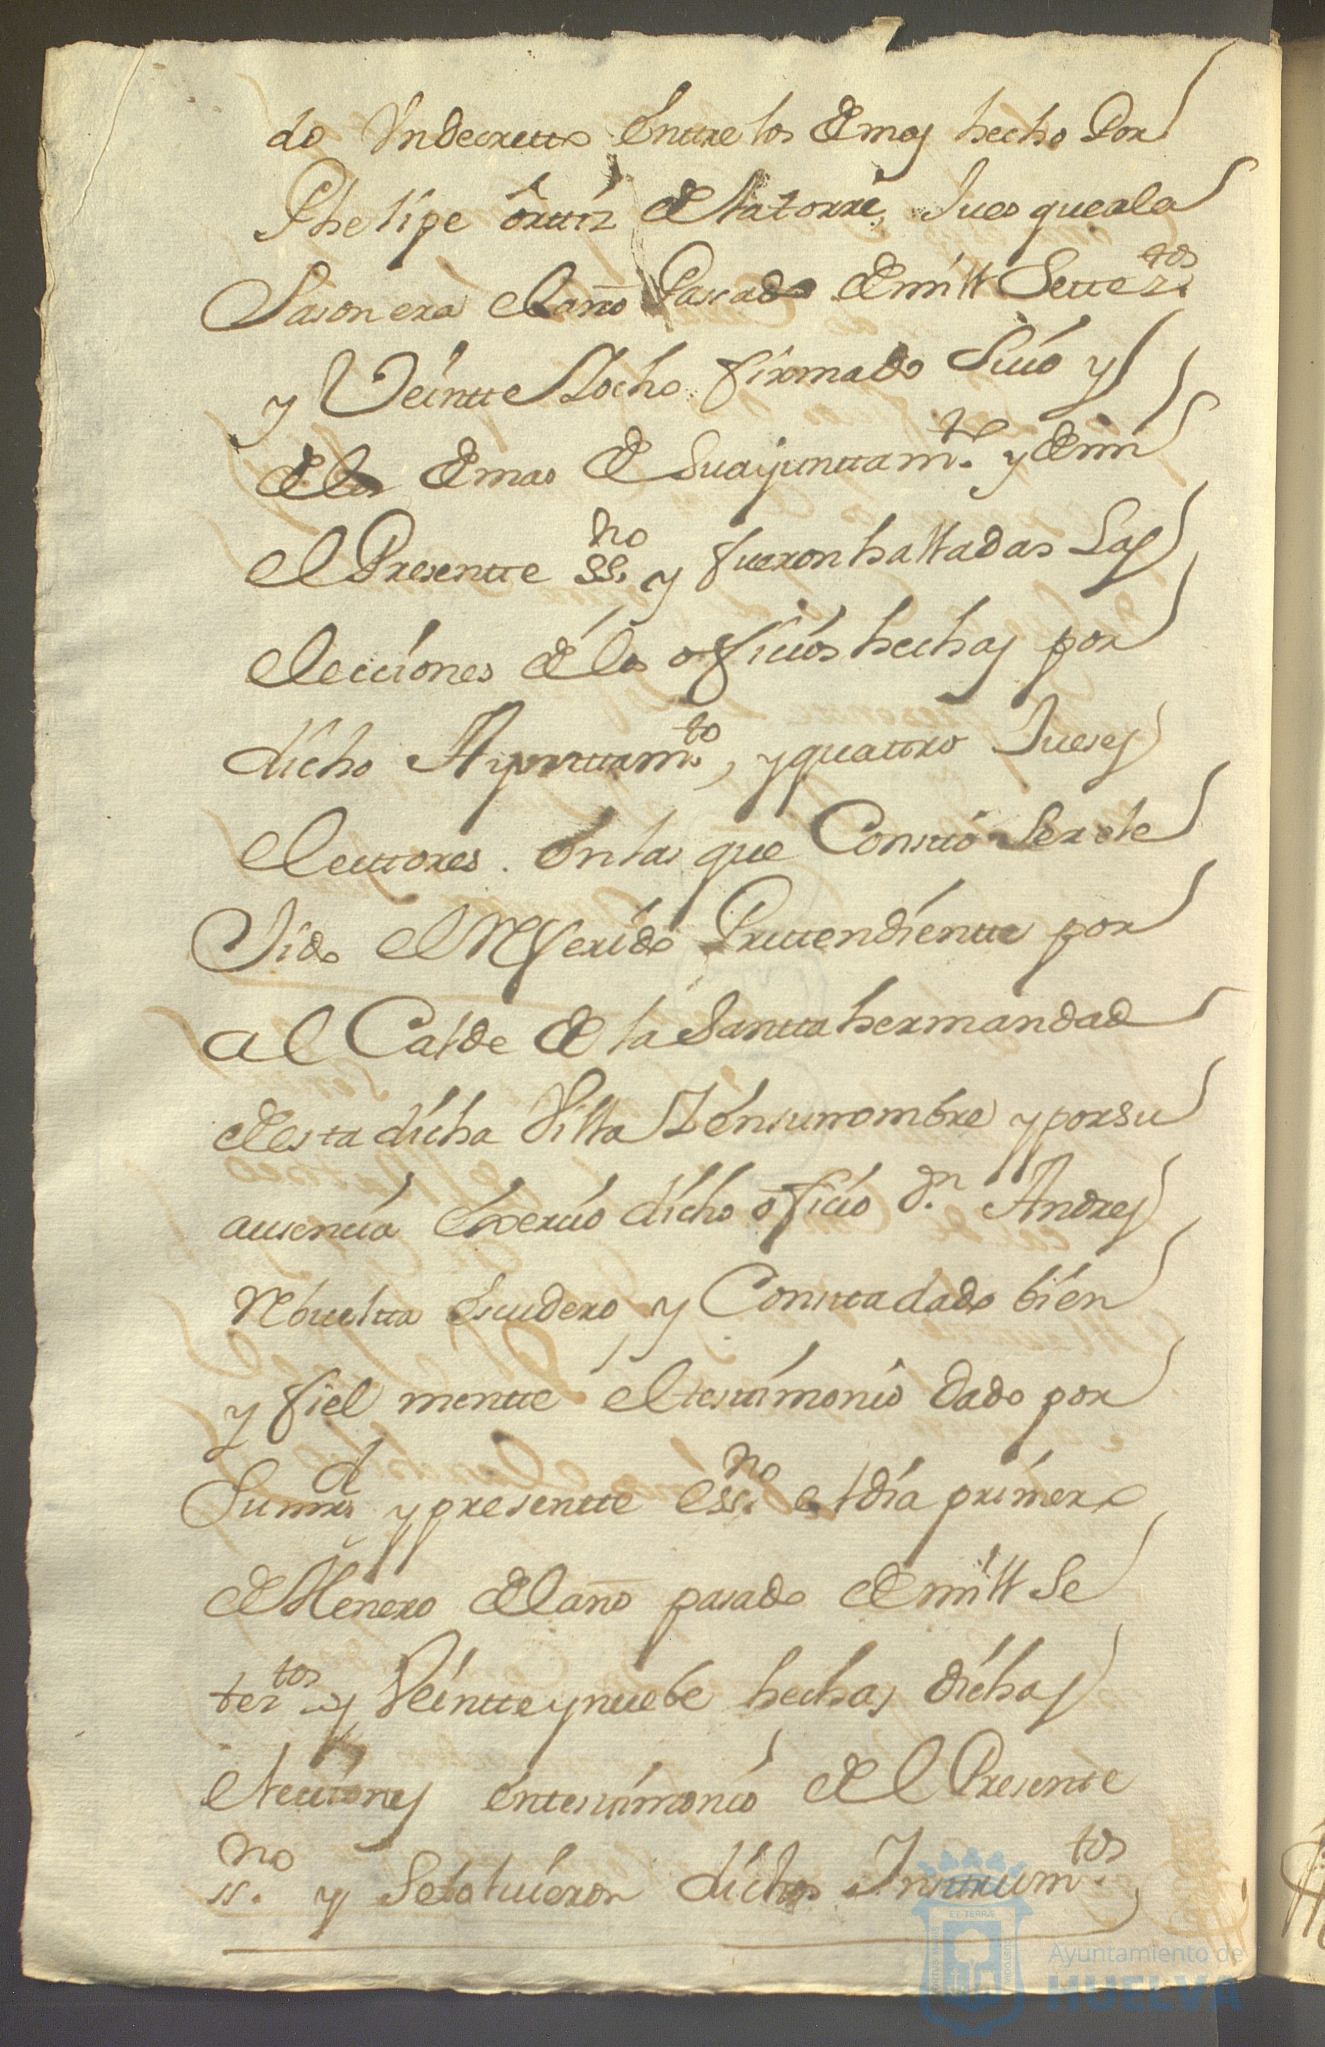 do Vn decretto Enttre los Demas hecho Por
Phelipe Orttiz de la torre, Jues que a la
Sason era el año Pasado de mill Settez.tos
y Veintte Y ocho firmado Suio y
de los demas de Su ayunttam.to y de mi
el Presentte ss.no y fueron halladas Las
elecciones de los oficios hechas por
dicho Ayunttam.to, y quattro Jueses
electtores. en las que Consttó Ser ele
Jido el Referido Prettendientte por
al Calde de la Santta hermandad
de esta dicha Villa Y en su nombre y por su
ausencia exercio dicho oficio d.n Andres
Rebueltta escudero y Constta dado bien
y fiel mentte el testimonio dado por
Su mrd y presentte ess.no el dia primero
de Henero del año pasado de mill Se
tez.tos y Veintte y nuebe hechas dichas
elecciones en testimonio de el Presente
ss.no y Se bolvieron dichos Instrum.tos
Ayuntamiento de
HUELVA